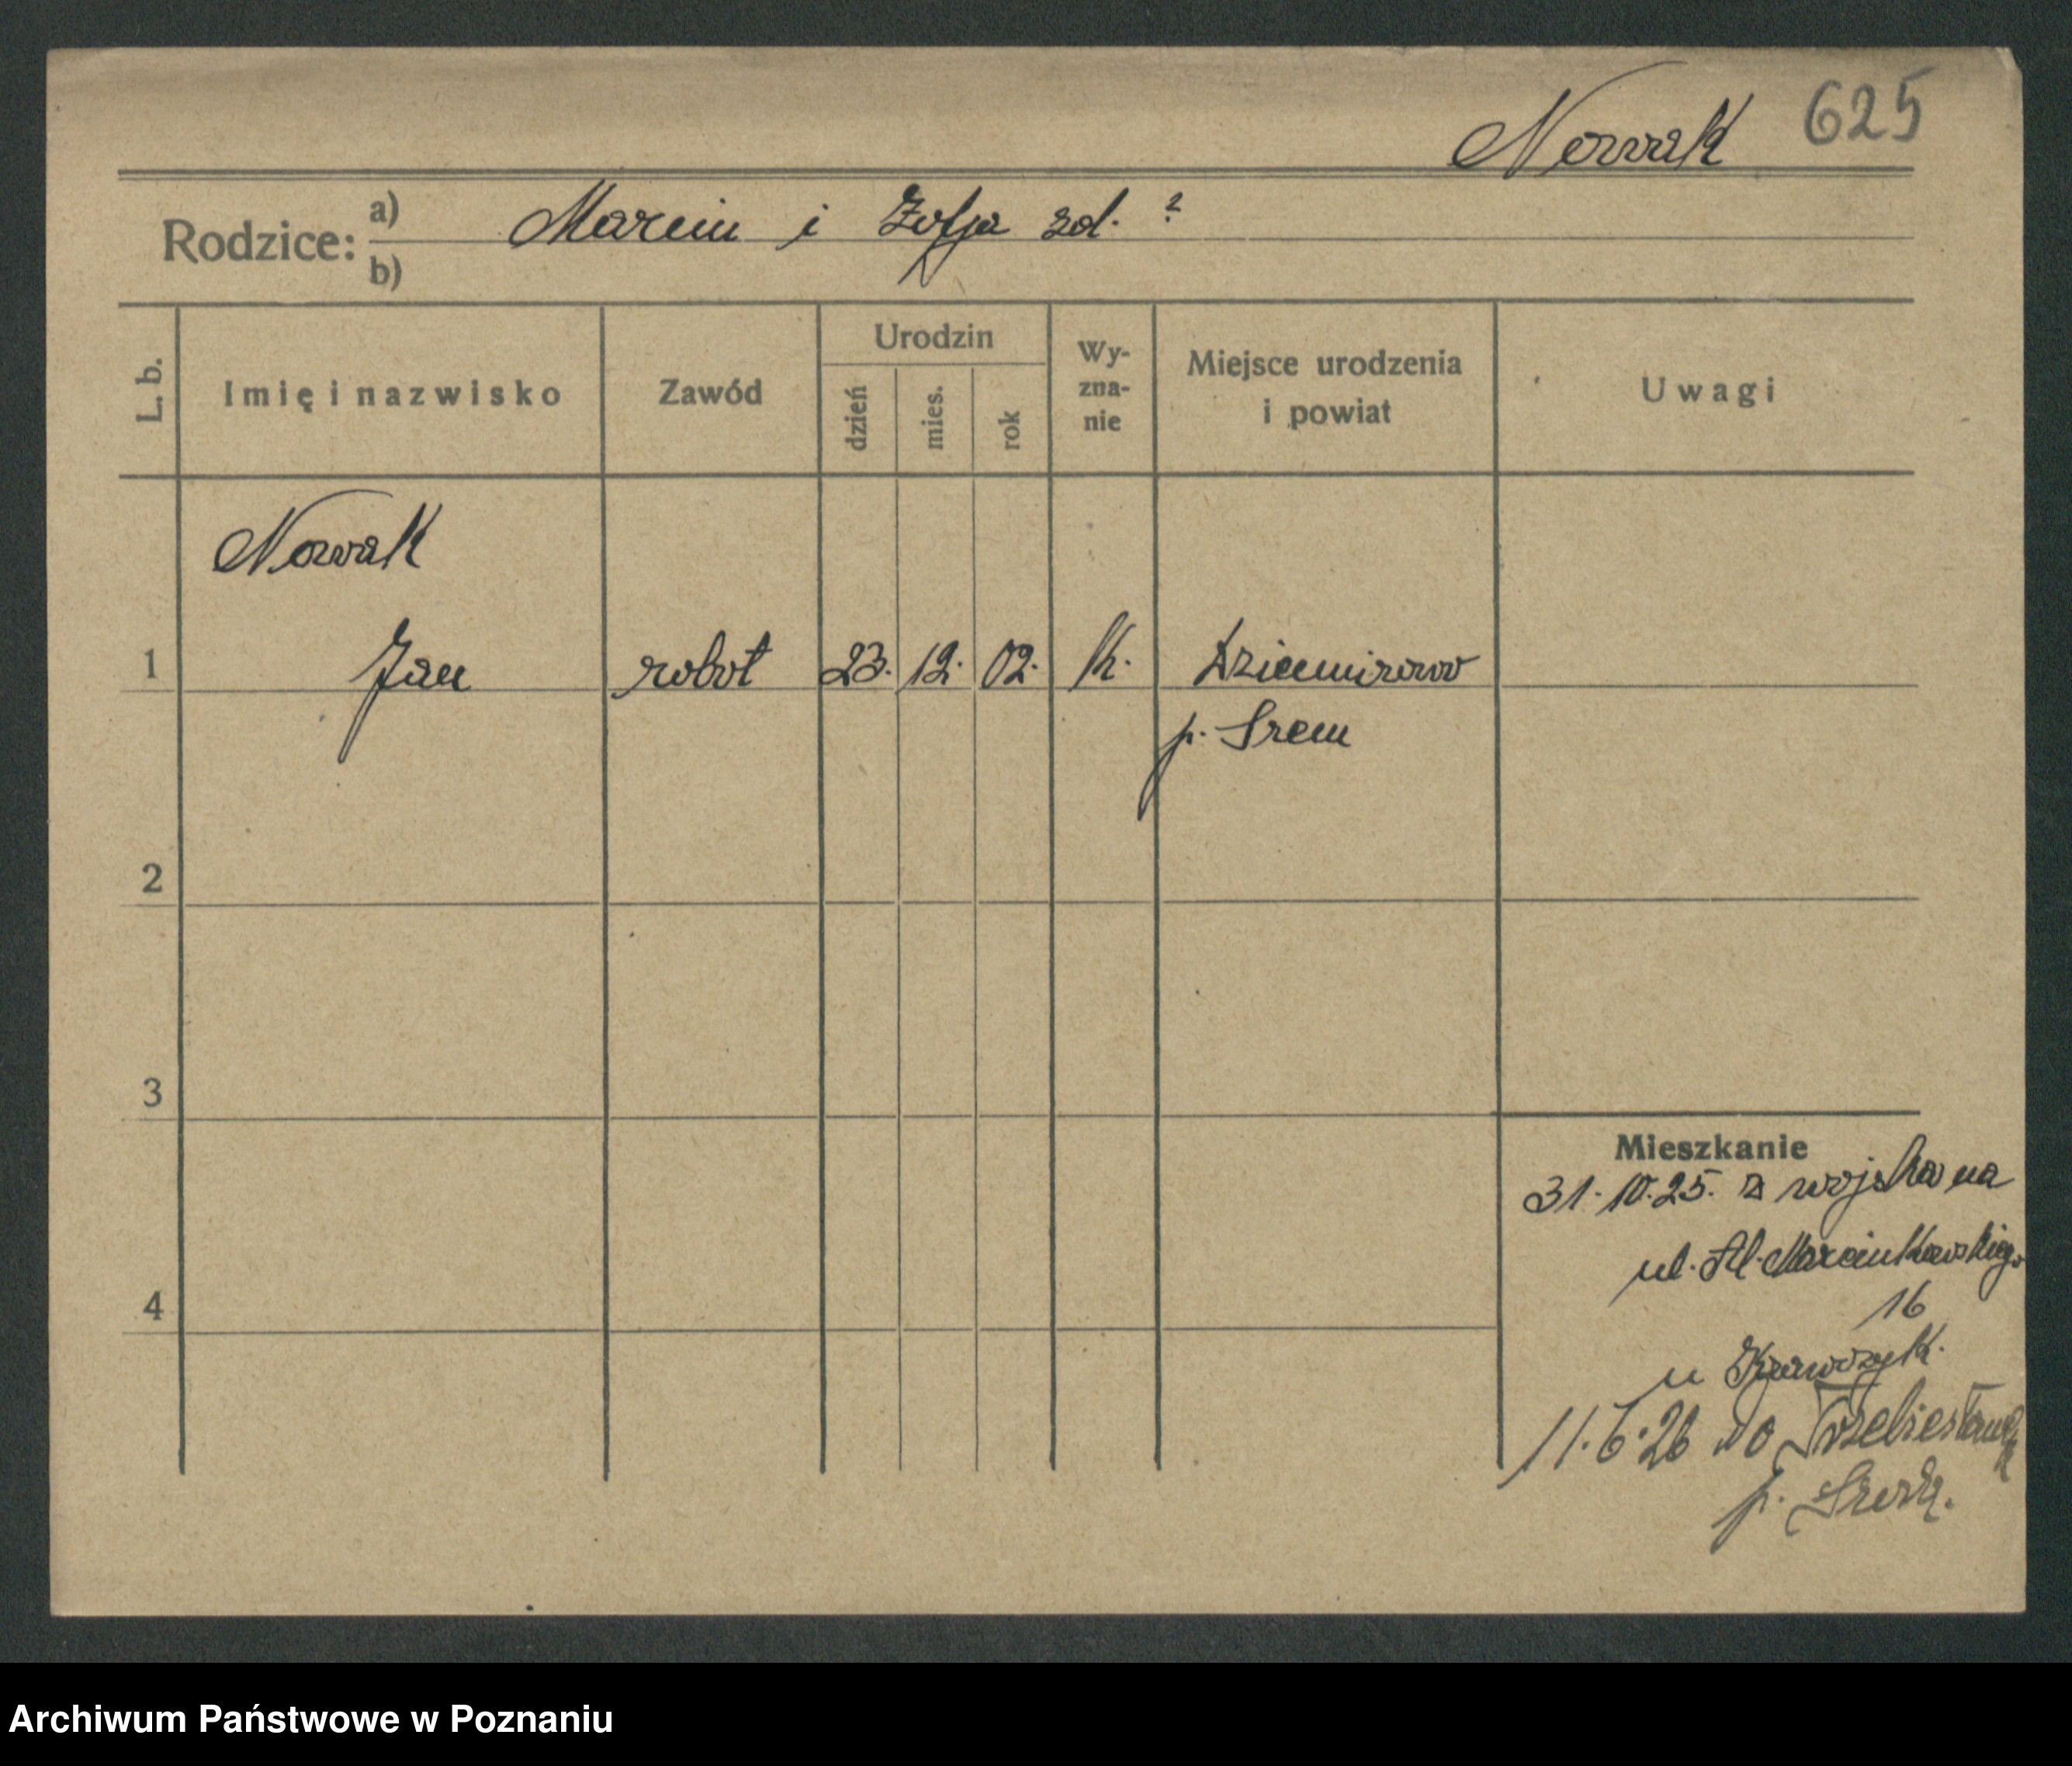 Nowak 625
Rodzice: a) Marcin i Zofja zd. ?
b)
L. b. Imię i nazwisko Zawód Urodzin dzień mies. rok Wy-zna-nie Miejsce urodzenia i powiat Uwagi
Nowak
1 Jan robot 23. 12. 02. k. Dziemirowo
p. Srem
2
3
Mieszkanie
31.10.25. z wojska na
ul. Al. Marcinkowskiego
4 16
u Krawczyk.
11.6.26 do
p. Środa.
Archiwum Państwowe w Poznaniu